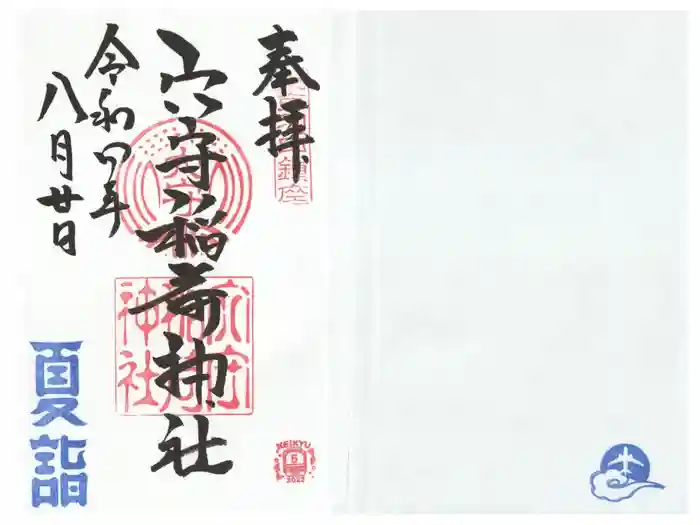 奉拝
穴守稲荷神社
令和四年
八月廿日
鎮座
穴守稲荷神社
夏詣
KEIKYU
5
2022